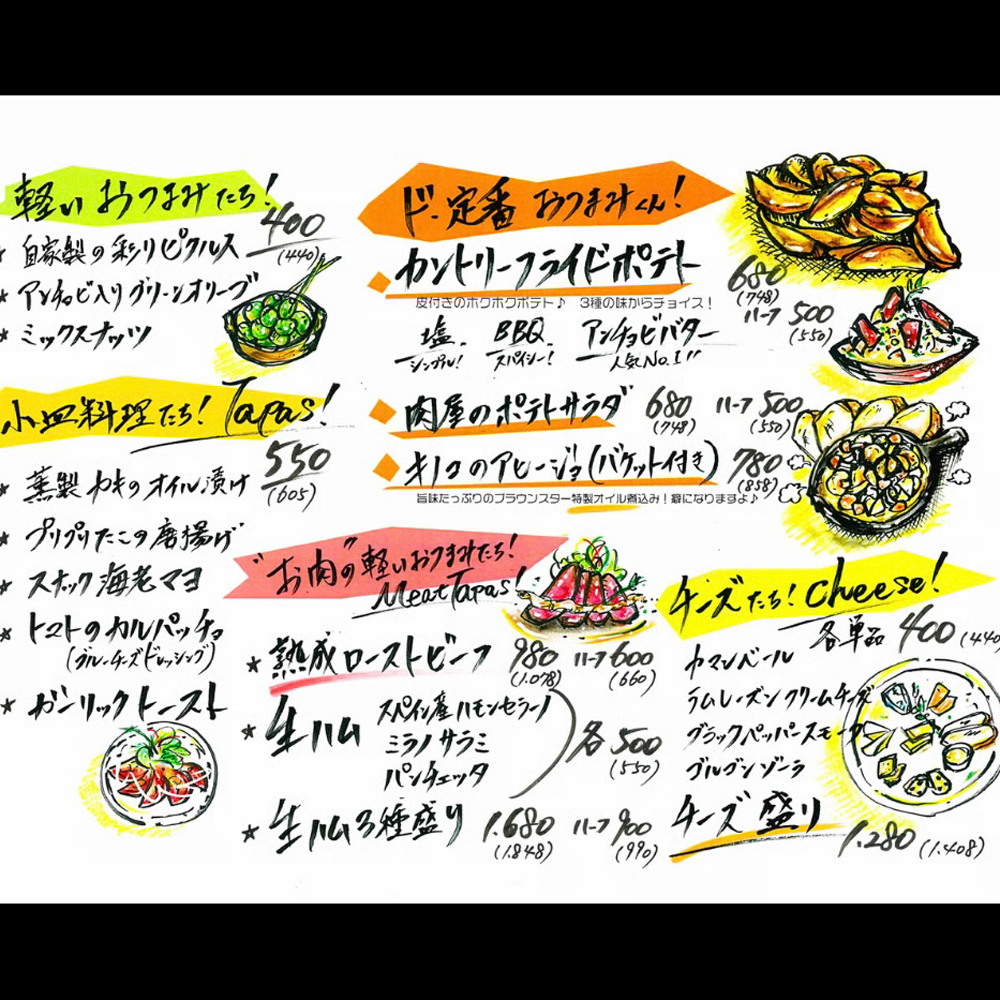 軽いおつまみたち!
400
(440)
* 自家製の彩りピクルス
* アンチョビ入りグリーンオリーブ
* ミックスナッツ
小皿料理たち! Tapas!
550
(605)
* 薫製カキのオイル漬け
* プリプリたこの唐揚げ
* スナック海老マヨ
* トマトのカルパッチョ
(ブルーチーズドレッシング)
* ガーリックトースト
ド・定番おつまみくん!
カントリーフライドポテト
680
(748)
皮付きのホクホクポテト♪ 3種の味からチョイス!
ハーフ 500
(550)
塩 BBQ アンチョビバター
シンプル! スパイシー! 人気No.1!!
肉屋のポテトサラダ 680 ハーフ 500
(748) (550)
キノコのアヒージョ(バケット付き) 780
(858)
旨味たっぷりのブラウンスター特製オイル煮込み!癖になりますよ♪
"お肉"の軽いおつまみたち!
Meat Tapas!
* 熟成ローストビーフ 980 ハーフ 600
(1.078) (660)
* 生ハム スペイン産ハモンセラーノ
ミラノサラミ
パンチェッタ
各 500
(550)
* 生ハム3種盛り 1.680 ハーフ 900
(1.848) (990)
チーズたち! Cheese!
各単品 400 (440)
カマンベール
ラムレーズンクリームチーズ
ブラックペッパースモーク
ゴルゴンゾーラ
チーズ盛り 1.280 (1.408)